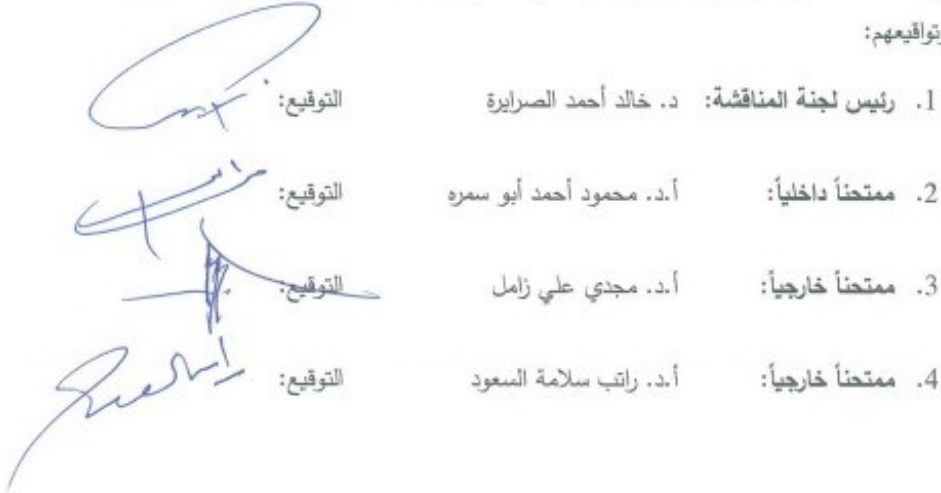 وتواقيعهم:
1. رئيس لجنة المناقشة: د. خالد أحمد الصرايرة التوقيع:
2. ممتحناً داخلياً: أ.د. محمود أحمد أبو سمره التوقيع:
3. ممتحناً خارجياً: أ.د. مجدي علي زامل التوقيع:
4. ممتحناً خارجياً: أ.د. راتب سلامة السعود التوقيع: